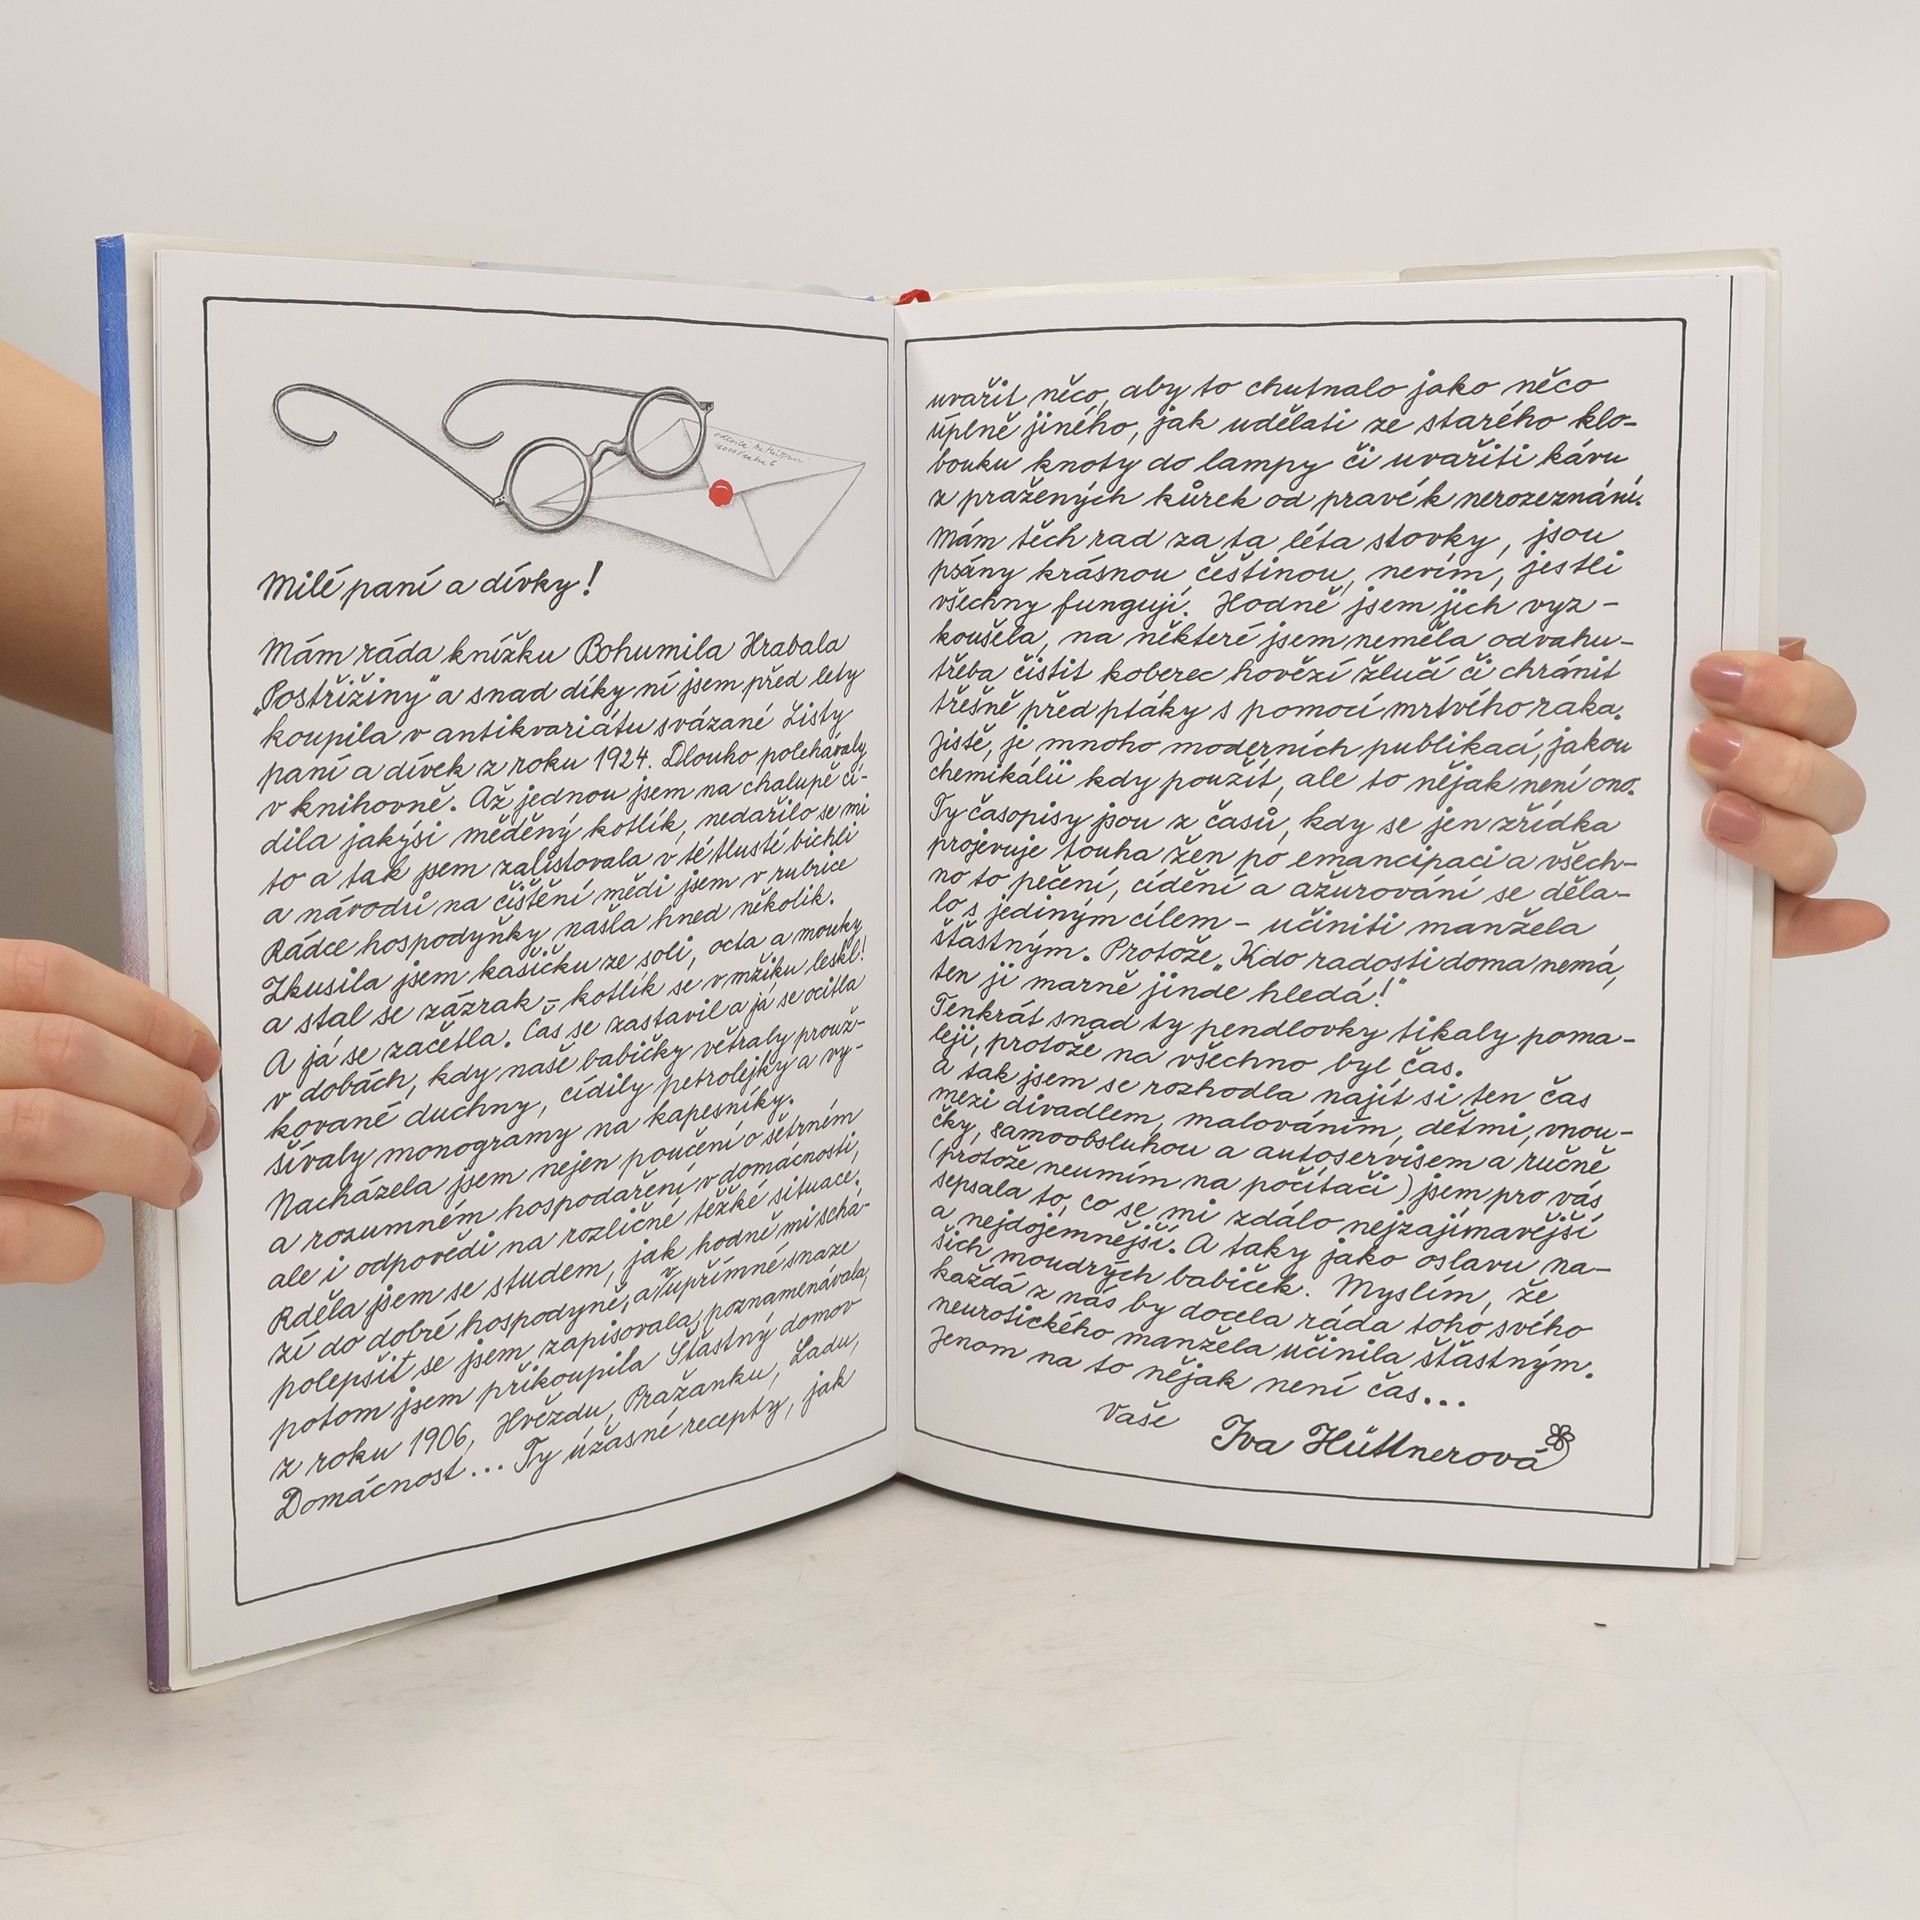 Milé paní a dívky!
Mám ráda knížku Bohumila Hrabala
„Postřižiny" a snad díky ní jsem před lety
koupila v antikvariátu svázané Listy
paní a dívek z roku 1924. Dlouho polehávaly
v knihovně. Až jednou jsem na chalupě čí-
dila jakýsi měděný kotlík, nedařilo se mi
to a tak jsem zalistovala v té tlusté bichli
a návodů na čištění mědi jsem v rubrice
Rádce hospodyňky našla hned několik.
Zkusila jsem kašičku ze soli, octa a mouky
a stal se zázrak – kotlík se v mžiku leskl!
A já se začetla. Čas se zastavil a já se ocitla
v dobách, kdy naše babičky větraly prouž-
kované duchny, cídily petrolejky a vy-
šívaly monogramy na kapesníky.
Nacházela jsem nejen poučení o šetrném
a rozumném hospodaření v domácnosti,
ale i odpovědi na rozličné těžké situace.
Rděla jsem se studem, jak hodně mi schá-
zí do dobré hospodyně, a v upřímné snaze
polepšit se jsem zapisovala, poznamenávala,
potom jsem přikoupila Šťastný domov
z roku 1906, Hvězdu, Pražanku, Ladu,
Domácnost... Ty úžasné recepty, jak
uvařit něco, aby to chutnalo jako něco
úplně jiného, jak udělati ze starého klo-
bouku knoty do lampy či uvařiti kávu
z pražených kůrek od pravé k nerozeznání.
Mám těch rad za ta léta stovky, jsou
psány krásnou češtinou, nevím, jestli
všechny fungují. Hodně jsem jich vyz-
koušela, na některé jsem neměla odvahu-
třeba čistit koberec hovězí žlučí či chránit
třešně před ptáky s pomocí mrtvého raka.
Jistě, je mnoho moderních publikací, jakou
chemikálii kdy použít, ale to nějak není ono.
Ty časopisy jsou z časů, kdy se jen zřídka
projevuje touha žen po emancipaci a všech-
no to pečení, cídění a ažurování se děla-
lo s jediným cílem – učiniti manžela
šťastným. Protože „Kdo radosti doma nemá,
ten ji marně jinde hledá!"
Tenkrát snad ty pendlovky tikaly poma-
leji, protože na všechno byl čas.
A tak jsem se rozhodla najít si ten čas
mezi divadlem, malováním, dětmi, vnou-
čky, samoobsluhou a autoservisem a ručně
(protože neumím na počítači) jsem pro vás
sepsala to, co se mi zdálo nejzajímavější
a nejdojemnější. A taky jako oslavu na-
šich moudrých babiček. Myslím, že
každá z nás by docela ráda toho svého
neurotického manžela učinila šťastným.
Jenom na to nějak není čas...
Vaše
Iva Hüttnerová